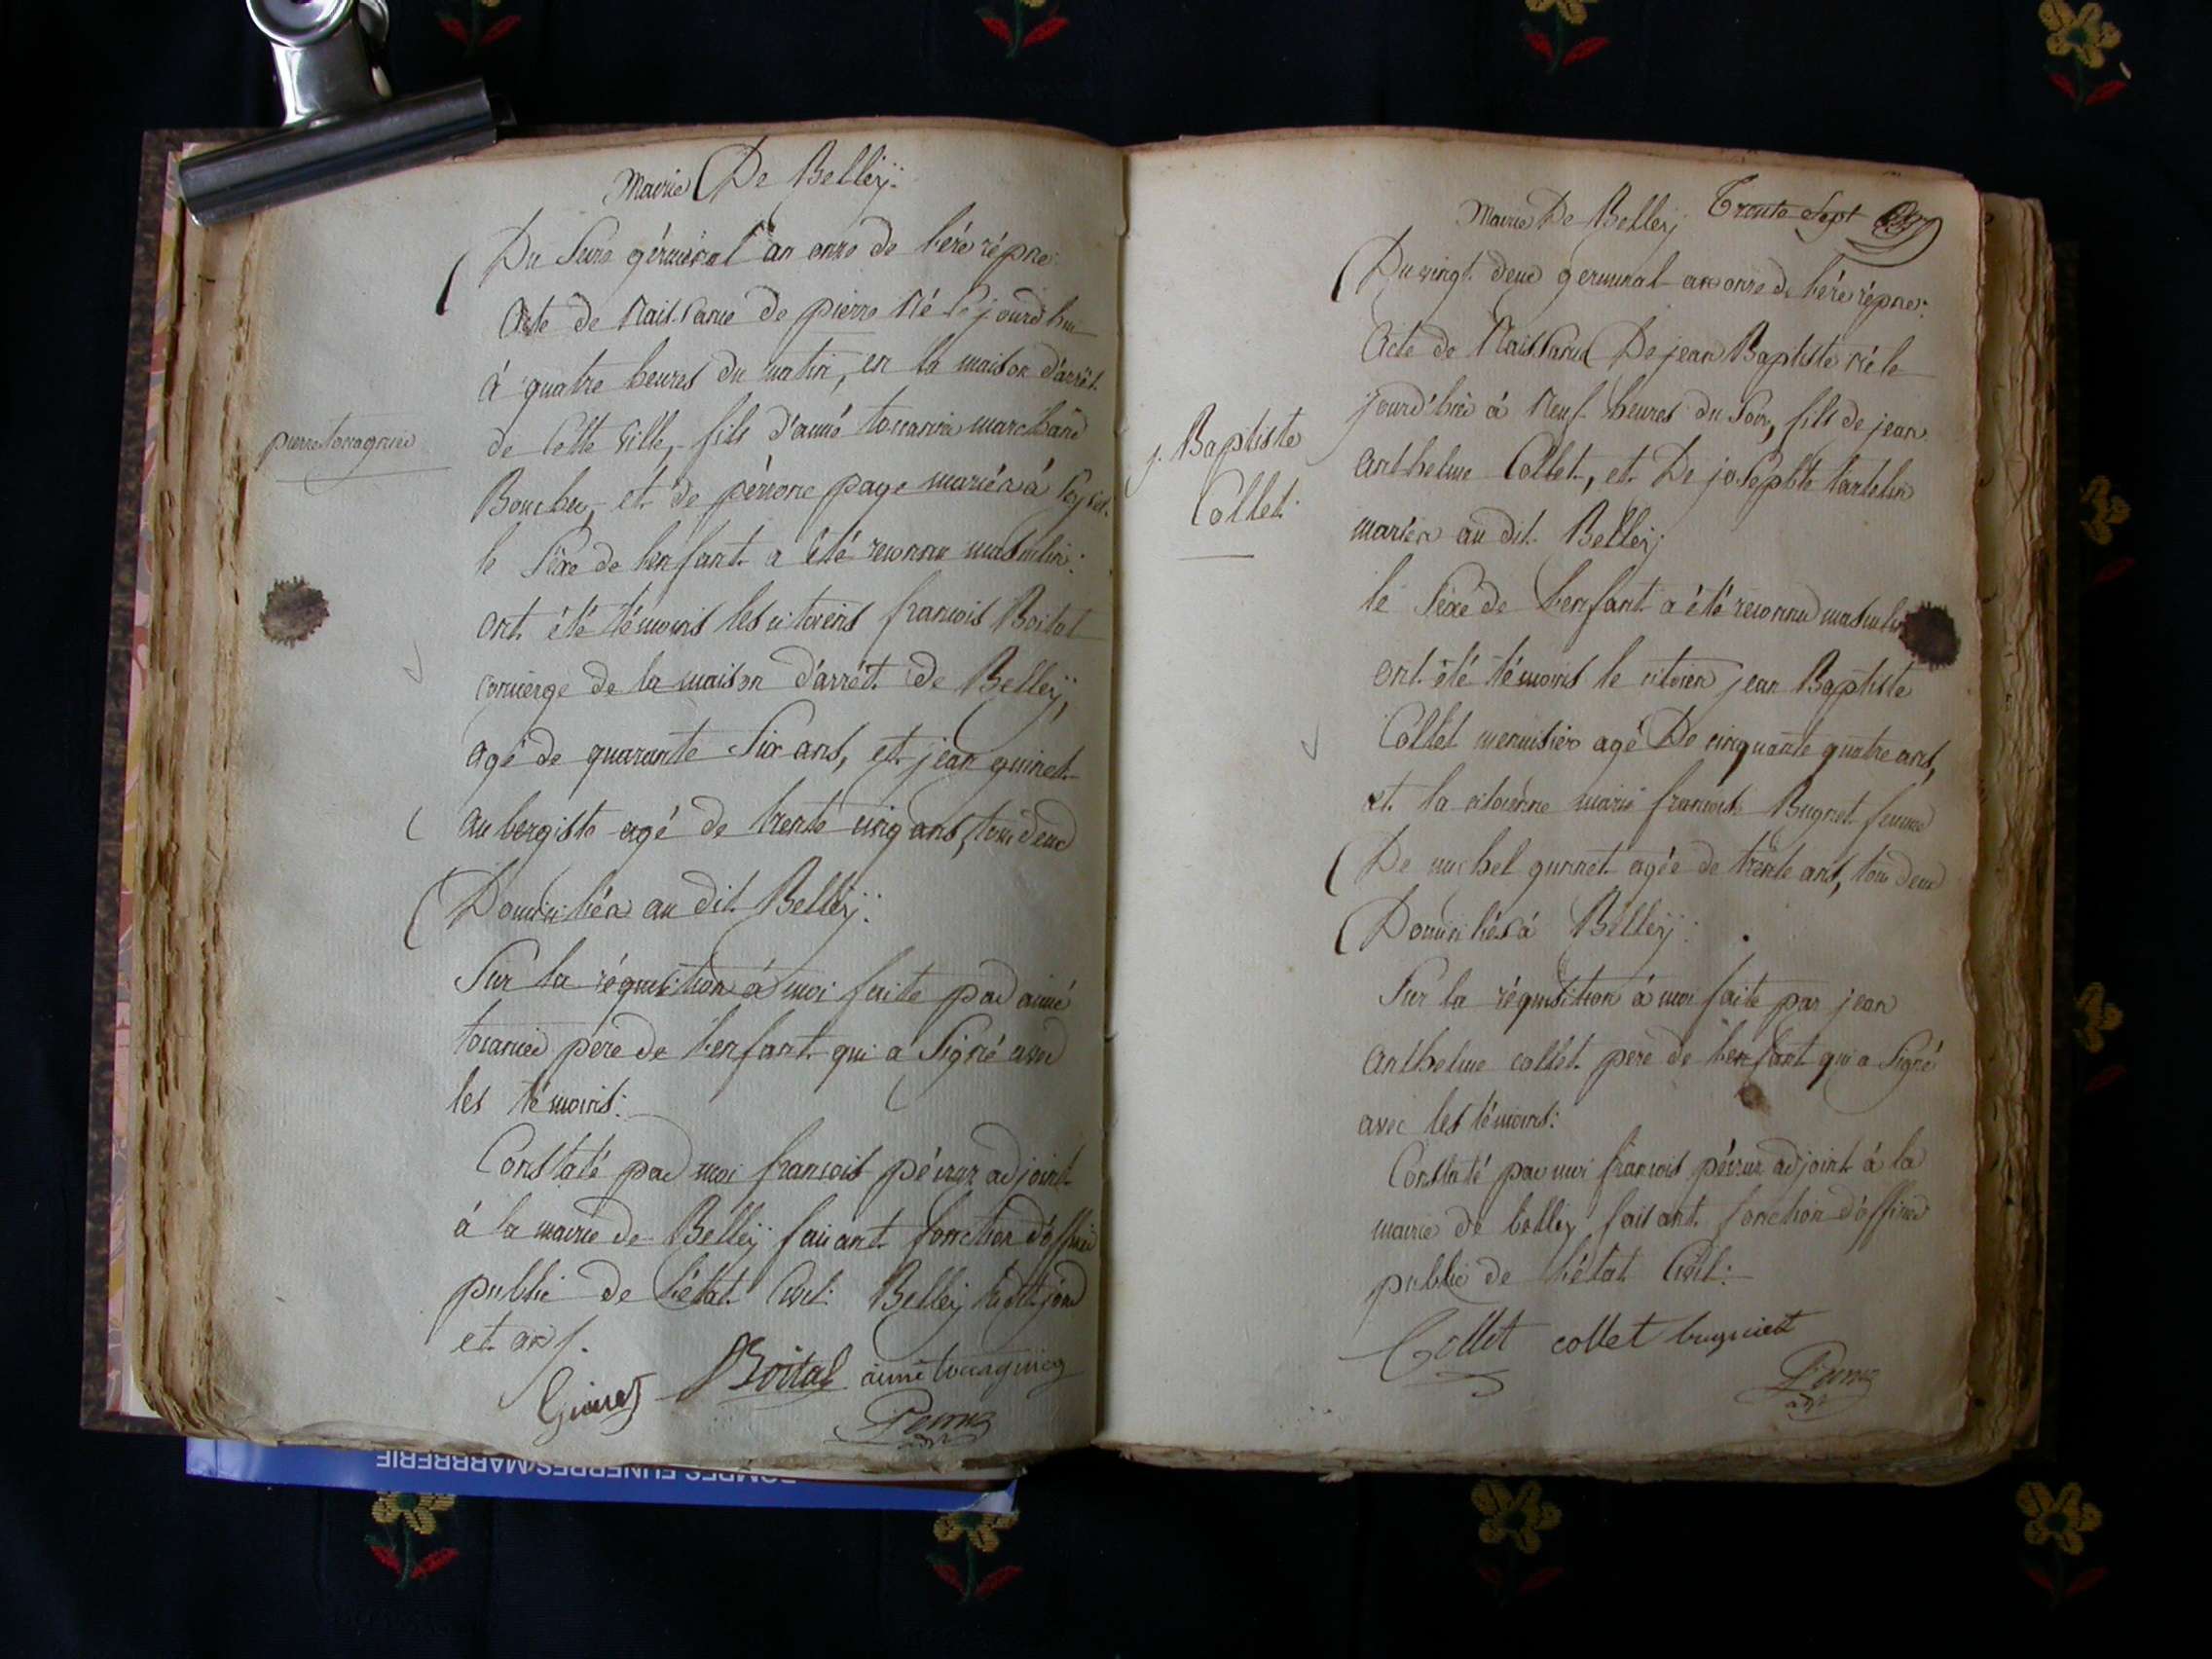 Mairie De Belleÿ:
Du Seize gérminal an onze de l'ére répne
Acte de Naissance de pierre Né le jourd'hui
à quatre heures du matin, en la maison d'arrêt
de Cette Ville, fils d'aimé marchand
Boucher, et de pérrone page mariés à
le Séxe de l'enfant a été reconnu masculin:
ont été témoins les citoiens francois Boital
concierge de la maison d'arrét de Belleÿ,
agé de quarante Six ans, et jean guinet
aubergiste agé de trente cinq ans, tous deux
Domiciliés au dit Belleÿ:
Sur la réquisition à moi faite par aimé
père de l'enfant qui a Signé avec
les témoins:
Constaté par moi francois adjoint
à la mairie de Belleÿ faisant fonction d'officier
public de l'état Civil: Belleÿ le dit jour
et an
Boital aimé
pierre
Mairie De Belleÿ Trente Sept
Du vingt deux germinal an onze de l'ére répne:
Acte de Naissance De jean Baptiste né le
jourd'hui à Neuf heures du Soir, fils de jean
anthelme Collet, et De josephte
mariés au dit Belleÿ
le Séxe de l'enfant a été reconnu masculin
ont été témoins le citoien jean Baptiste
Collet menuisier agé De cinquante quatre ans,
et la citoienne marie francoise Bugnet femme
De michel agée de trente ans, tous deux
Domiciliés à Belleÿ:
Sur la réquisition à moi faite par jean
anthelme collet pere de l'enfant qui a Signé
avec les témoins:
Constaté par moi francois adjoint à la
mairie de belleÿ faisant fonction d'officier
public de l'état Civil:
Collet collet
j. Baptiste
Collet
POMPES FUNEBRES/MARBRERIE